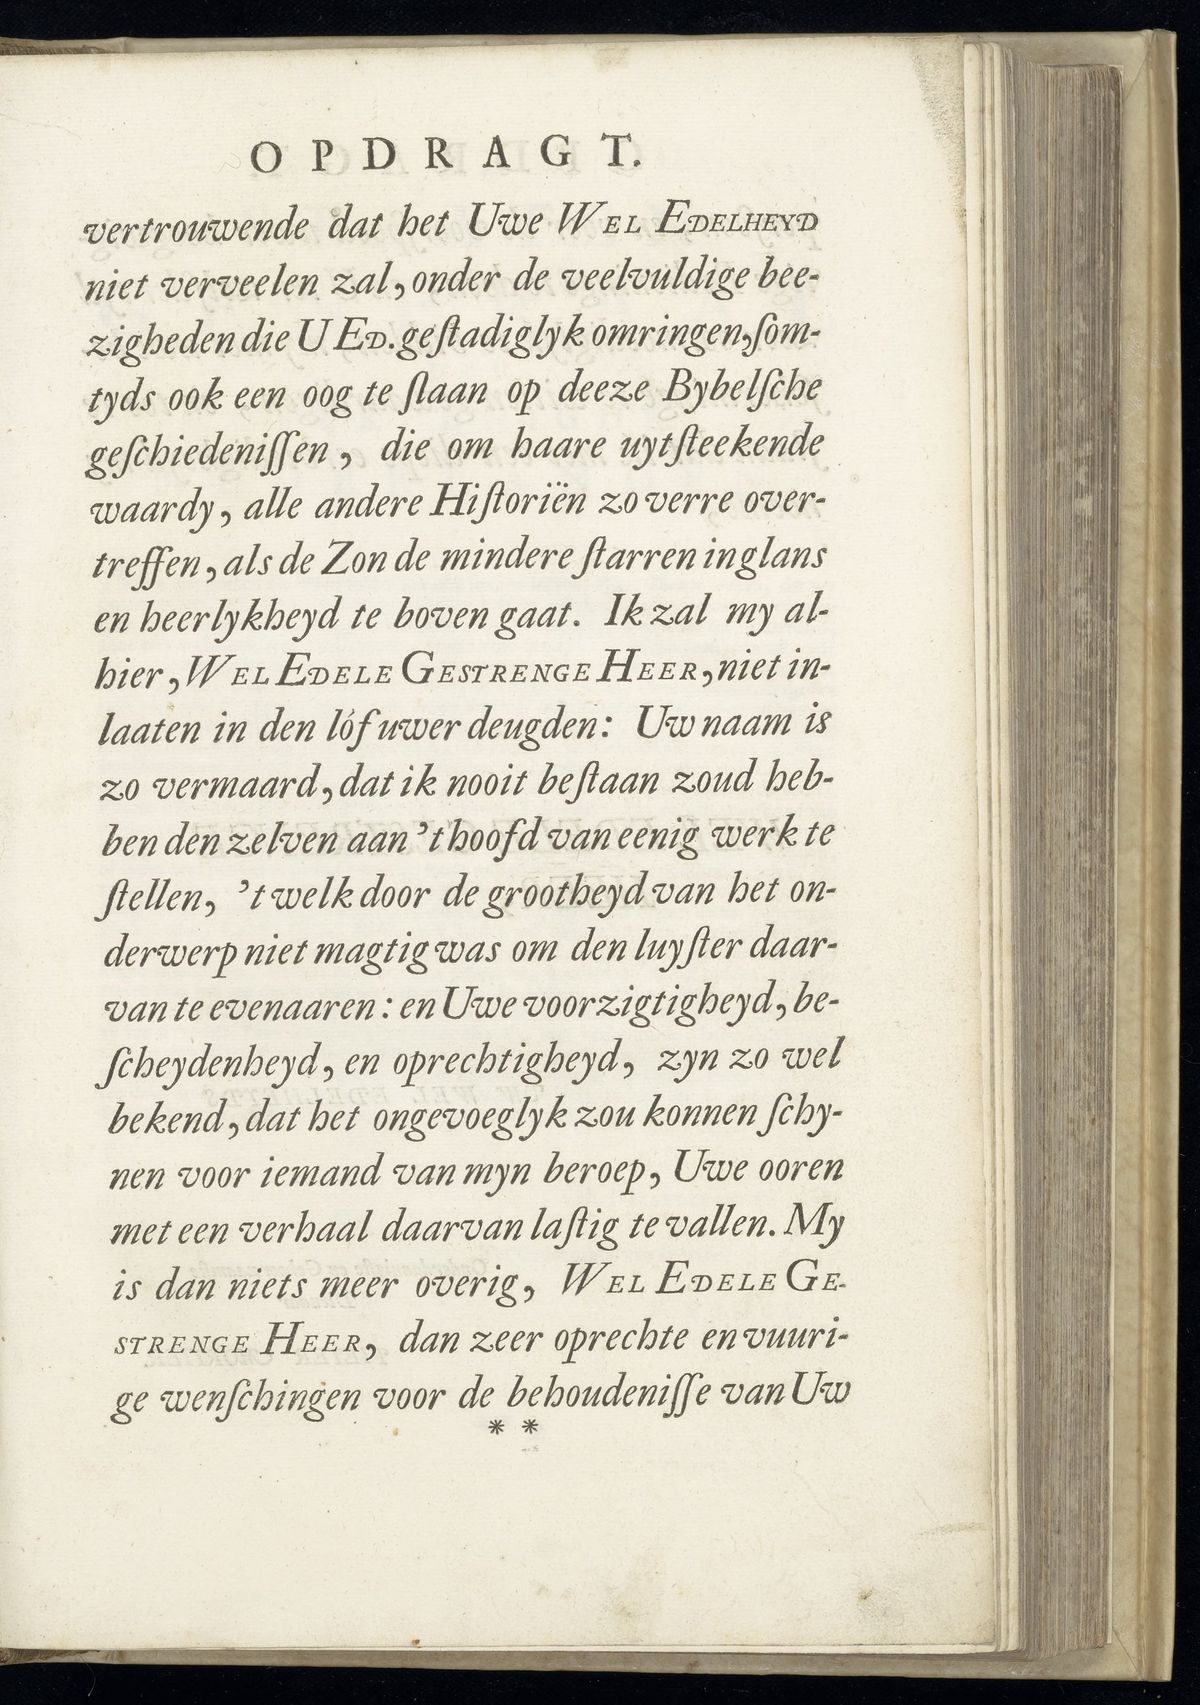 OPDRAGT.
vertrouwende dat het Uwe WEL EDELHEYD
niet verveelen zal, onder de veelvuldige bee-
zigheden die U ED. geſtadiglyk omringen, ſom-
tyds ook een oog te ſlaan op deeze Bybelſche
geſchiedeniſſen, die om haare uytſteekende
waardy, alle andere Hiſtoriën zo verre over-
treffen, als de Zon de mindere ſtarren in glans
en heerlykheyd te boven gaat. Ik zal my al-
hier, WEL EDELE GESTRENGE HEER, niet in-
laaten in den lóf uwer deugden: Uw naam is
zo vermaard, dat ik nooit beſtaan zoud heb-
ben den zelven aan 't hoofd van eenig werk te
ſtellen, 't welk door de grootheyd van het on-
derwerp niet magtig was om den luyſter daar-
van te evenaaren: en Uwe voorzigtigheyd, be-
ſcheydenheyd, en oprechtigheyd, zyn zo wel
bekend, dat het ongevoeglyk zou konnen ſchy-
nen voor iemand van myn beroep, Uwe ooren
met een verhaal daarvan laſtig te vallen. My
is dan niets meer overig, WEL EDELE GE-
STRENGE HEER, dan zeer oprechte en vuuri-
ge wenſchingen voor de behoudeniſſe van Uw
* *